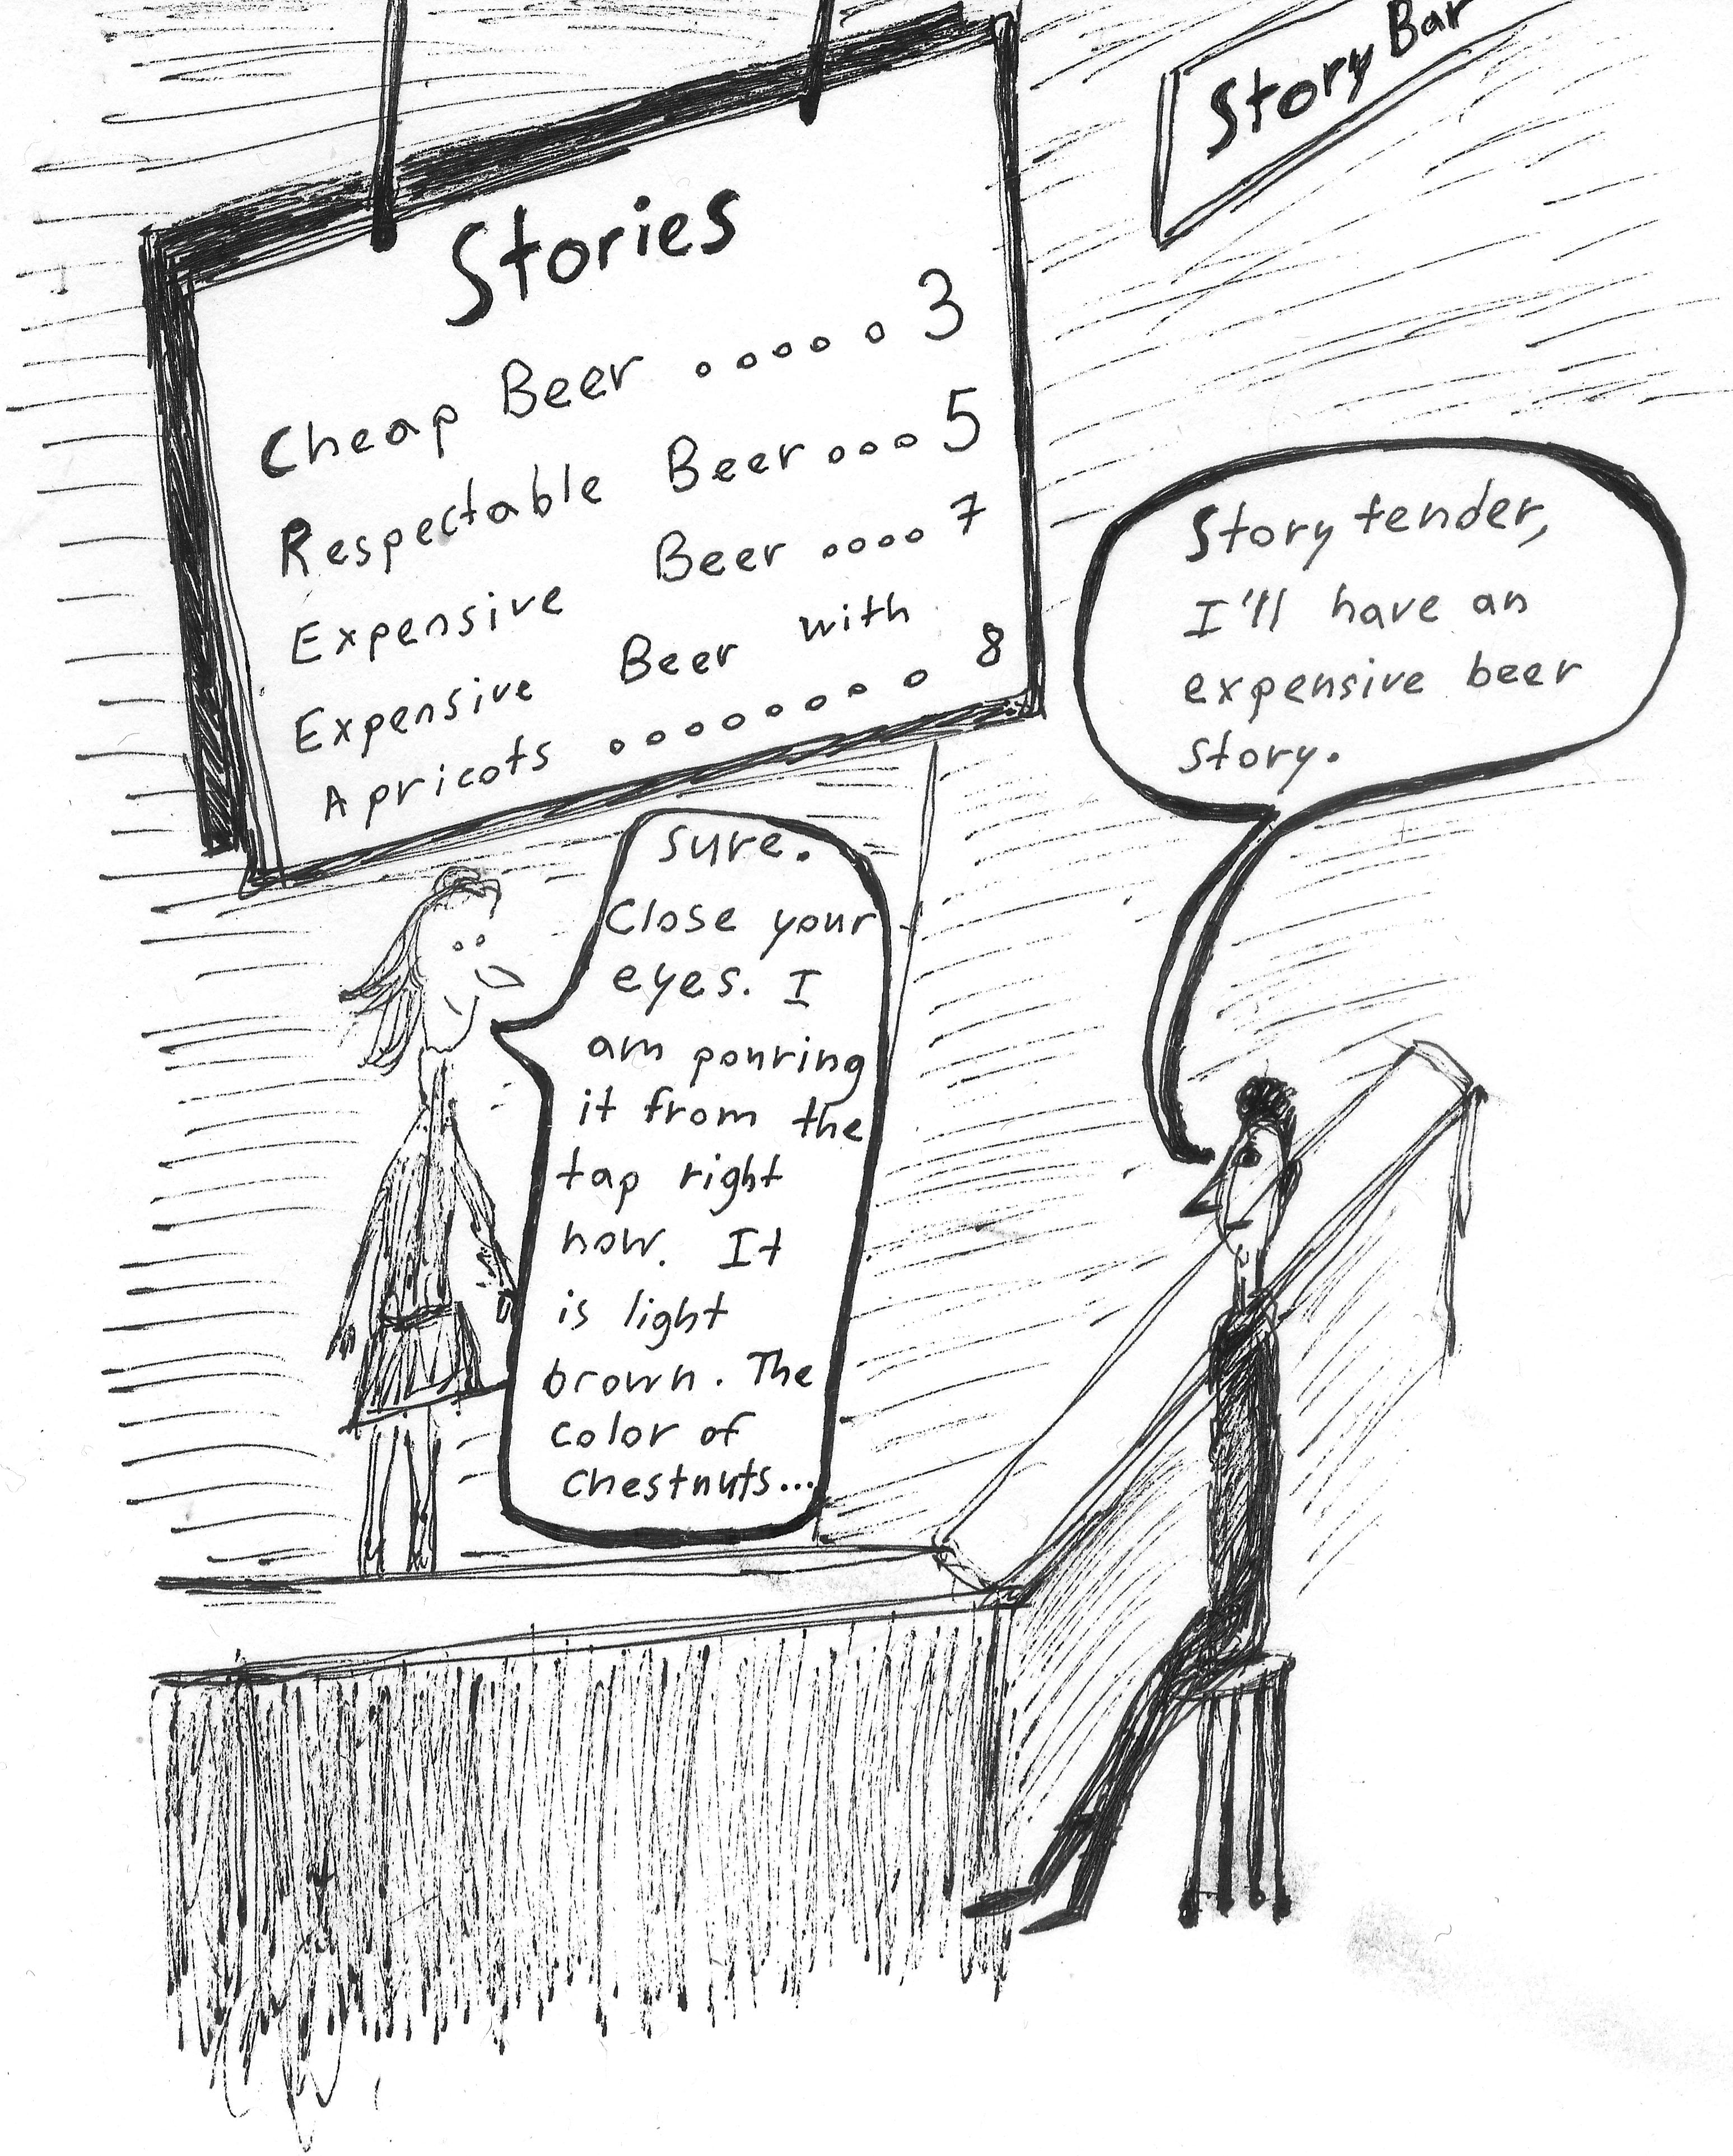 Story Bar
Stories
Cheap Beer ..... 3
Respectable Beer .... 5
Expensive Beer .... 7
Expensive Beer with
Apricots ........ 8
Story tender,
I'll have an
expensive beer
story.
Sure.
Close your
eyes. I
am pouring
it from the
tap right
now. It
is light
brown. The
color of
chestnuts...